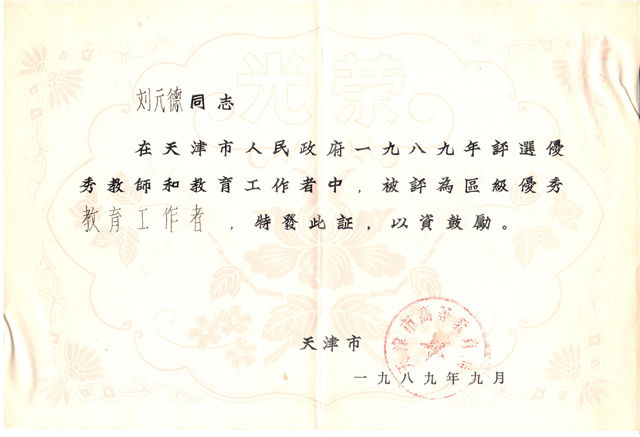 光荣
刘元德同志
在天津市人民政府一九八九年評選優
秀教師和教育工作者中，被評為區級優秀
教育工作者，特發此証，以資鼓勵。
天津市
一九八九年九月